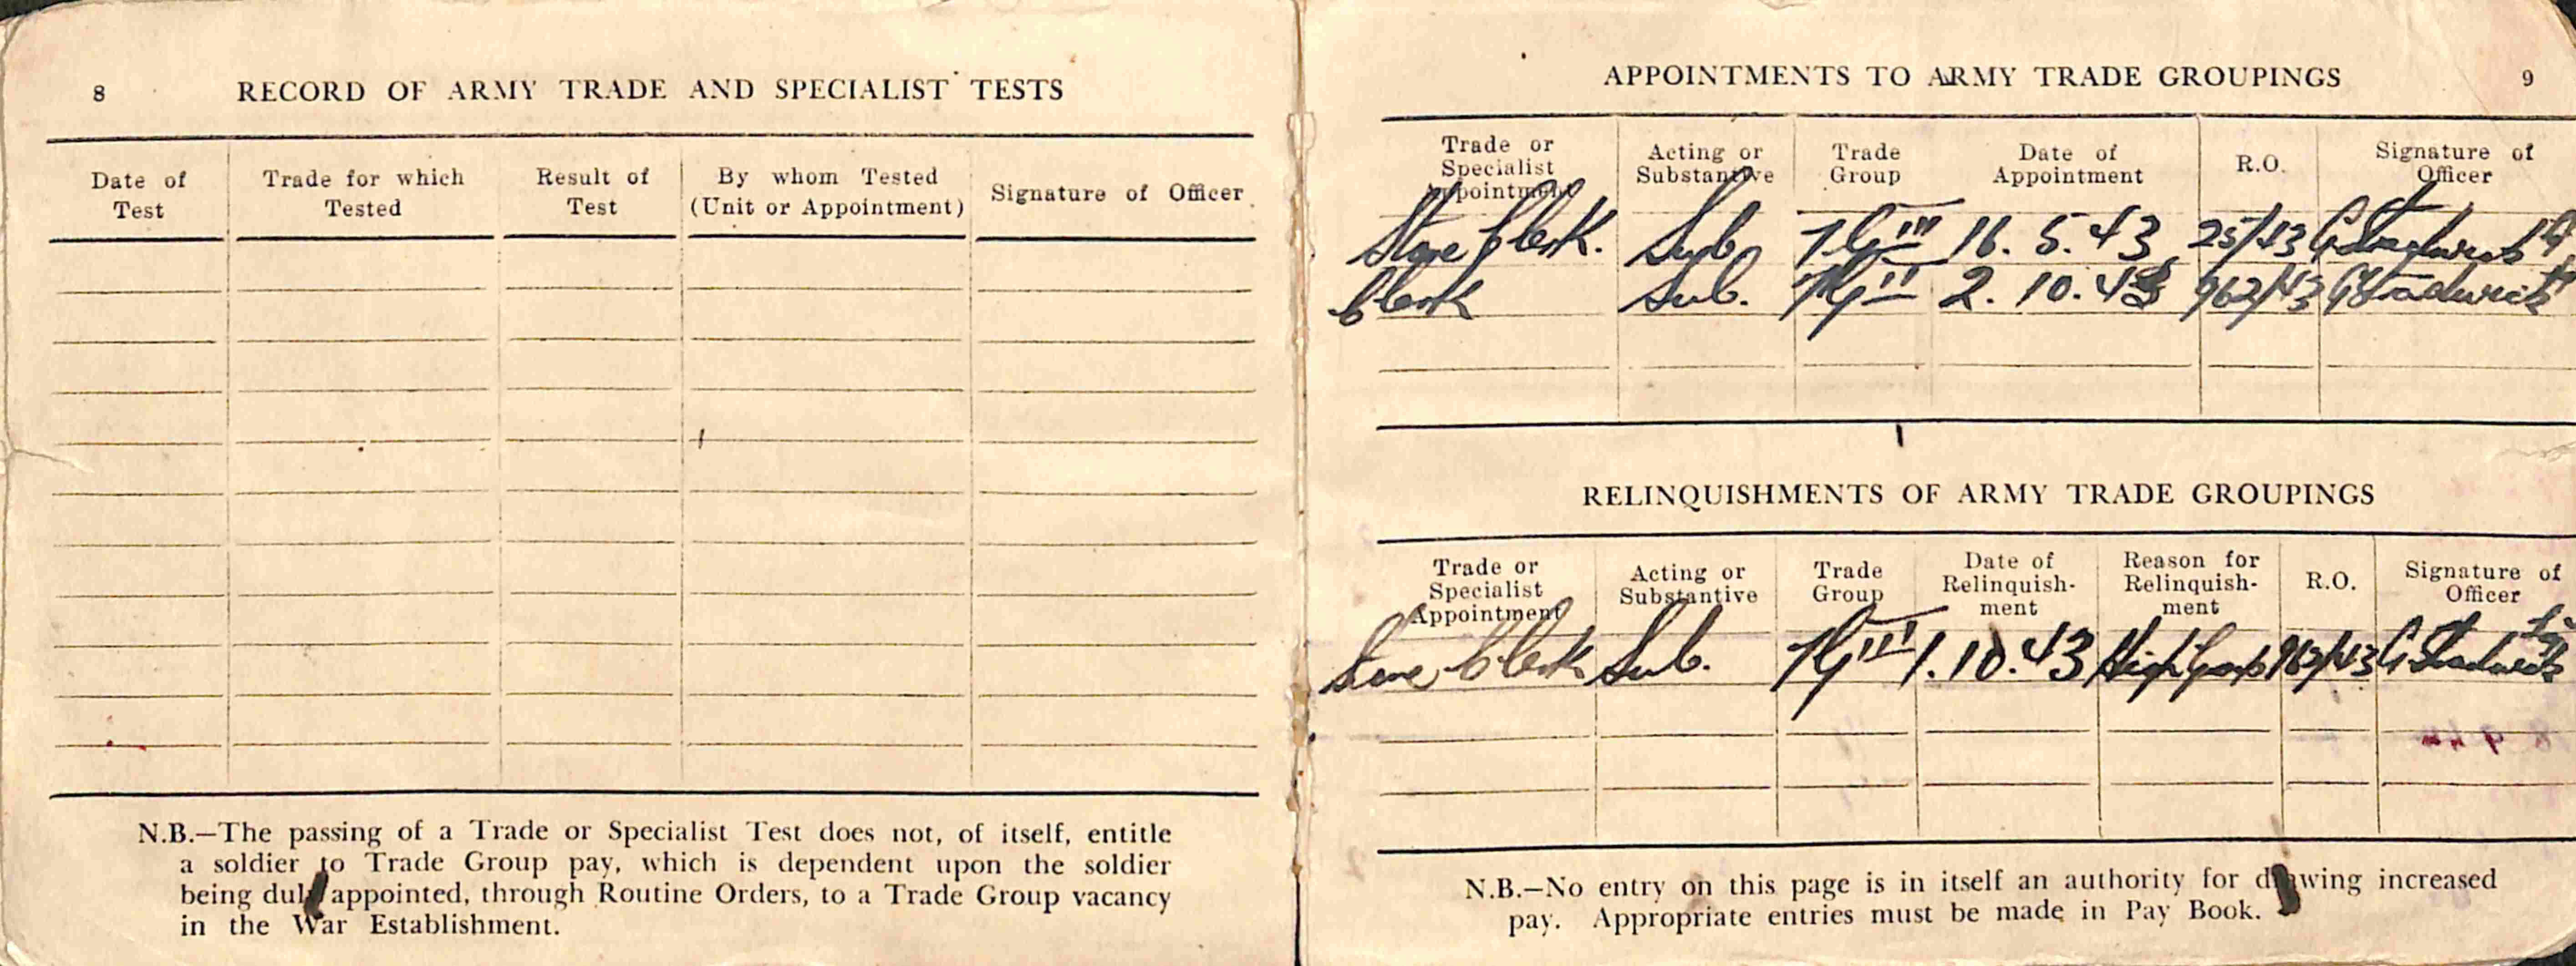 8 RECORD OF ARMY TRADE AND SPECIALIST TESTS
Date of Test Trade for which Tested Result of Test By whom Tested (Unit or Appointment) Signature of Officer
N.B.—The passing of a Trade or Specialist Test does not, of itself, entitle
a soldier to Trade Group pay, which is dependent upon the soldier
being duly appointed, through Routine Orders, to a Trade Group vacancy
in the War Establishment.
APPOINTMENTS TO ARMY TRADE GROUPINGS 9
Trade or Specialist Appointment Acting or Substantive Trade Group Date of Appointment R.O. Signature of Officer
Store Clerk. Sub. TG III 16. 5. 43 25/43
Clerk Sub. TG II 2. 10. 43 962/43
RELINQUISHMENTS OF ARMY TRADE GROUPINGS
Trade or Specialist Appointment Acting or Substantive Trade Group Date of Relinquish- ment Reason for Relinquish- ment R.O. Signature of Officer
Store Clerk Sub. TG III 1. 10. 43 962/43
N.B.—No entry on this page is in itself an authority for drawing increased
pay. Appropriate entries must be made in Pay Book.